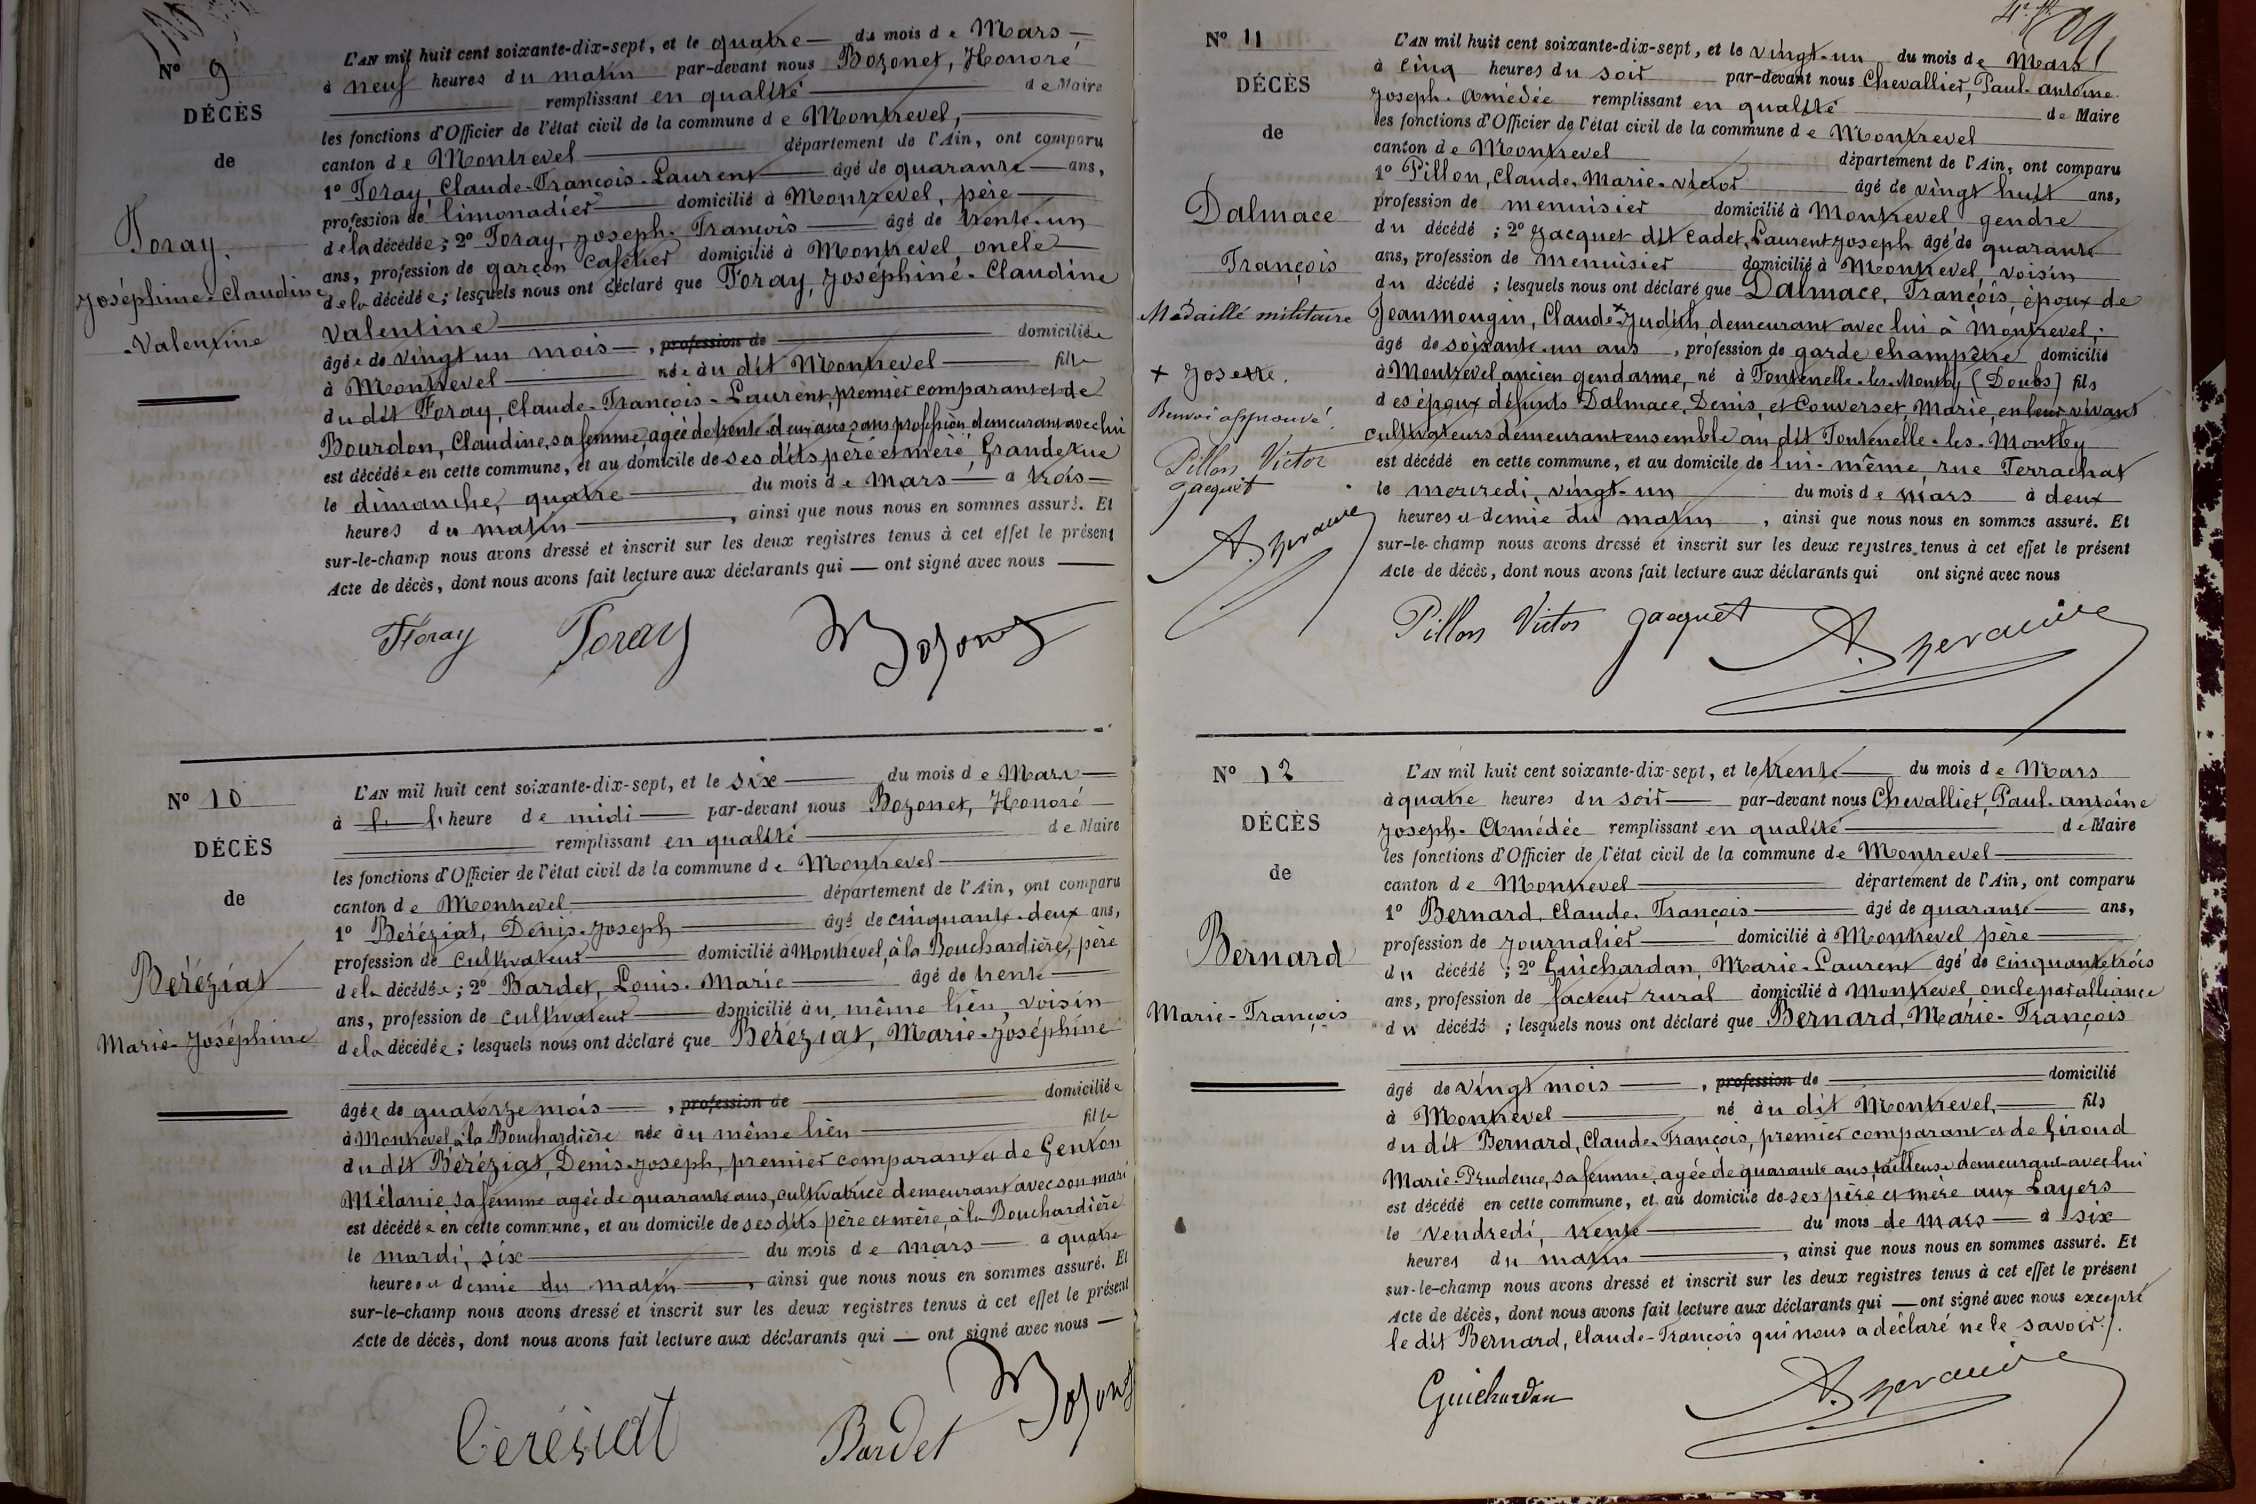 N° 9
DÉCÈS
de
Foray,
Joséphine-Claudine
-Valentine
L'AN mil huit cent soixante-dix-sept, et le quatre du mois de Mars
à neuf heures du matin par-devant nous Bozonet, Honoré
remplissant en qualité de Maire
les fonctions d'Officier de l'état civil de la commune de Montrevel,
canton de Montrevel département de l'Ain, ont comparu
1° Foray, Claude-François-Laurent âgé de quarante ans,
profession de limonadier domicilié à Montrevel, père
de la décédée; 2° Foray, Joseph-François âgé de trente-un
ans, profession de garçon cafetier domicilié à Montrevel, oncle
de la décédée; lesquels nous ont déclaré que Foray, Joséphine-Claudine
Valentine
âgée de vingt un mois, profession de domiciliée
à Montrevel née au dit Montrevel fille
du dit Foray, Claude-François-Laurent, premier comparant et de
Bourdon, Claudine, sa femme, agée de trente deux ans sans profession demeurant avec lui
est décédée en cette commune, et au domicile de ses dits père et mère, Grande Rue
le dimanche, quatre du mois de Mars à trois
heures du matin, ainsi que nous nous en sommes assuré. Et
sur-le-champ nous avons dressé et inscrit sur les deux registres tenus à cet effet le présent
Acte de décès, dont nous avons fait lecture aux déclarants qui ont signé avec nous
Foray Foray Bozonet
N° 10
DÉCÈS
de
Beréziat
Marie-Joséphine
L'AN mil huit cent soixante-dix-sept, et le six du mois de Mars
à l'heure de midi par-devant nous Bozonet, Honoré
remplissant en qualité de Maire
les fonctions d'Officier de l'état civil de la commune de Montrevel
canton de Montrevel département de l'Ain, ont comparu
1° Beréziat, Denis-Joseph âgé de cinquante-deux ans,
profession de cultivateur domicilié à Montrevel, à la Bouchardière, père
de la décédée; 2° Bardet, Louis-Marie âgé de trente
ans, profession de cultivateur domicilié au même lieu, voisin
de la décédée; lesquels nous ont déclaré que Beréziat, Marie-Joséphine
âgée de quatorze mois, profession de domiciliée
à Montrevel, à la Bouchardière née au même lieu fille
du dit Béréziat, Denis-Joseph, premier comparant et de Genton
Mélanie, sa femme agée de quarante ans, cultivatrice demeurant avec son mari
est décédée en cette commune, et au domicile de ses dits père et mère, à la Bouchardière
le mardi, six du mois de Mars à quatre
heures et demie du matin, ainsi que nous nous en sommes assuré. Et
sur-le-champ nous avons dressé et inscrit sur les deux registres tenus à cet effet le présent
Acte de décès, dont nous avons fait lecture aux déclarants qui ont signé avec nous
Béréziat Bardet Bozonet
N° 11
DÉCÈS
de
Dalmace
François
Médaillé militaire
+ Josette.
Renvoi approuvé.
Pillon Victor
Jacquet
L'AN mil huit cent soixante-dix-sept, et le vingt-un du mois de Mars
à cinq heures du soir par-devant nous Chevallier, Paul-Antoine
Joseph-Amédée remplissant en qualité de Maire
les fonctions d'Officier de l'état civil de la commune de Montrevel
canton de Montrevel département de l'Ain, ont comparu
1° Pillon, Claude-Marie-Victor âgé de vingt huit ans,
profession de menuisier domicilié à Montrevel gendre
du décédé; 2° Jacquet dit Cadet, Laurent Joseph âgé de quarante
ans, profession de menuisier domicilié à Montrevel, voisin
du décédé; lesquels nous ont déclaré que Dalmace, François, époux de
Jeanmougin, Claude+Judith, demeurant avec lui à Montrevel;
âgé de soixante-un ans, profession de garde champêtre domicilié
à Montrevel, ancien gendarme, né à Fontenelle-les-Montby (Doubs) fils
des époux défunts Dalmace, Denis, et Converset, Marie, en leur vivant
cultivateurs demeurant ensemble au dit Fontenelle-les-Montby
est décédé en cette commune, et au domicile de lui-même rue Terrachat
le mercredi, vingt-un du mois de Mars à deux
heures et demie du matin, ainsi que nous nous en sommes assuré. Et
sur-le-champ nous avons dressé et inscrit sur les deux registres tenus à cet effet le présent
Acte de décès, dont nous avons fait lecture aux déclarants qui ont signé avec nous
Pillon Victor Jacquet
N° 12
DÉCÈS
de
Bernard
Marie-François
L'AN mil huit cent soixante-dix-sept, et le trente du mois de Mars
à quatre heures du soir par-devant nous Chevallier, Paul-Antoine
Joseph-Amédée remplissant en qualité de Maire
les fonctions d'Officier de l'état civil de la commune de Montrevel
canton de Montrevel département de l'Ain, ont comparu
1° Bernard, Claude-François âgé de quarante ans,
profession de journalier domicilié à Montrevel père
du décédé; 2° Guichardan, Marie-Laurent âgé de cinquante trois
ans, profession de facteur rural domicilié à Montrevel oncle par alliance
du décédé; lesquels nous ont déclaré que Bernard, Marie-François
âgé de vingt mois, profession de domicilié
à Montrevel né au dit Montrevel, fils
du dit Bernard, Claude-François, premier comparant et de Giroud
Marie-Prudence, sa femme, agée de quarante ans, tailleuse demeurant avec lui
est décédé en cette commune, et au domicile de ses père et mère aux Layers
le vendredi, trente du mois de Mars à six
heures du matin, ainsi que nous nous en sommes assuré. Et
sur-le-champ nous avons dressé et inscrit sur les deux registres tenus à cet effet le présent
Acte de décès, dont nous avons fait lecture aux déclarants qui ont signé avec nous excepté
le dit Bernard, Claude-François qui nous a déclaré ne le savoir./.
Guichardan